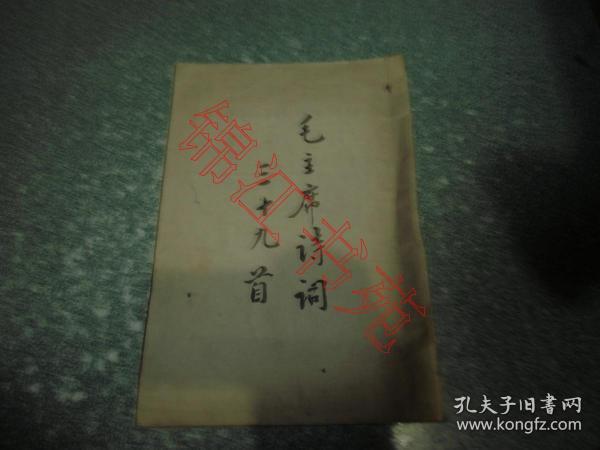 毛主席诗词
三十九首
锦江书苑
孔夫子旧书网
www.kongfz.com